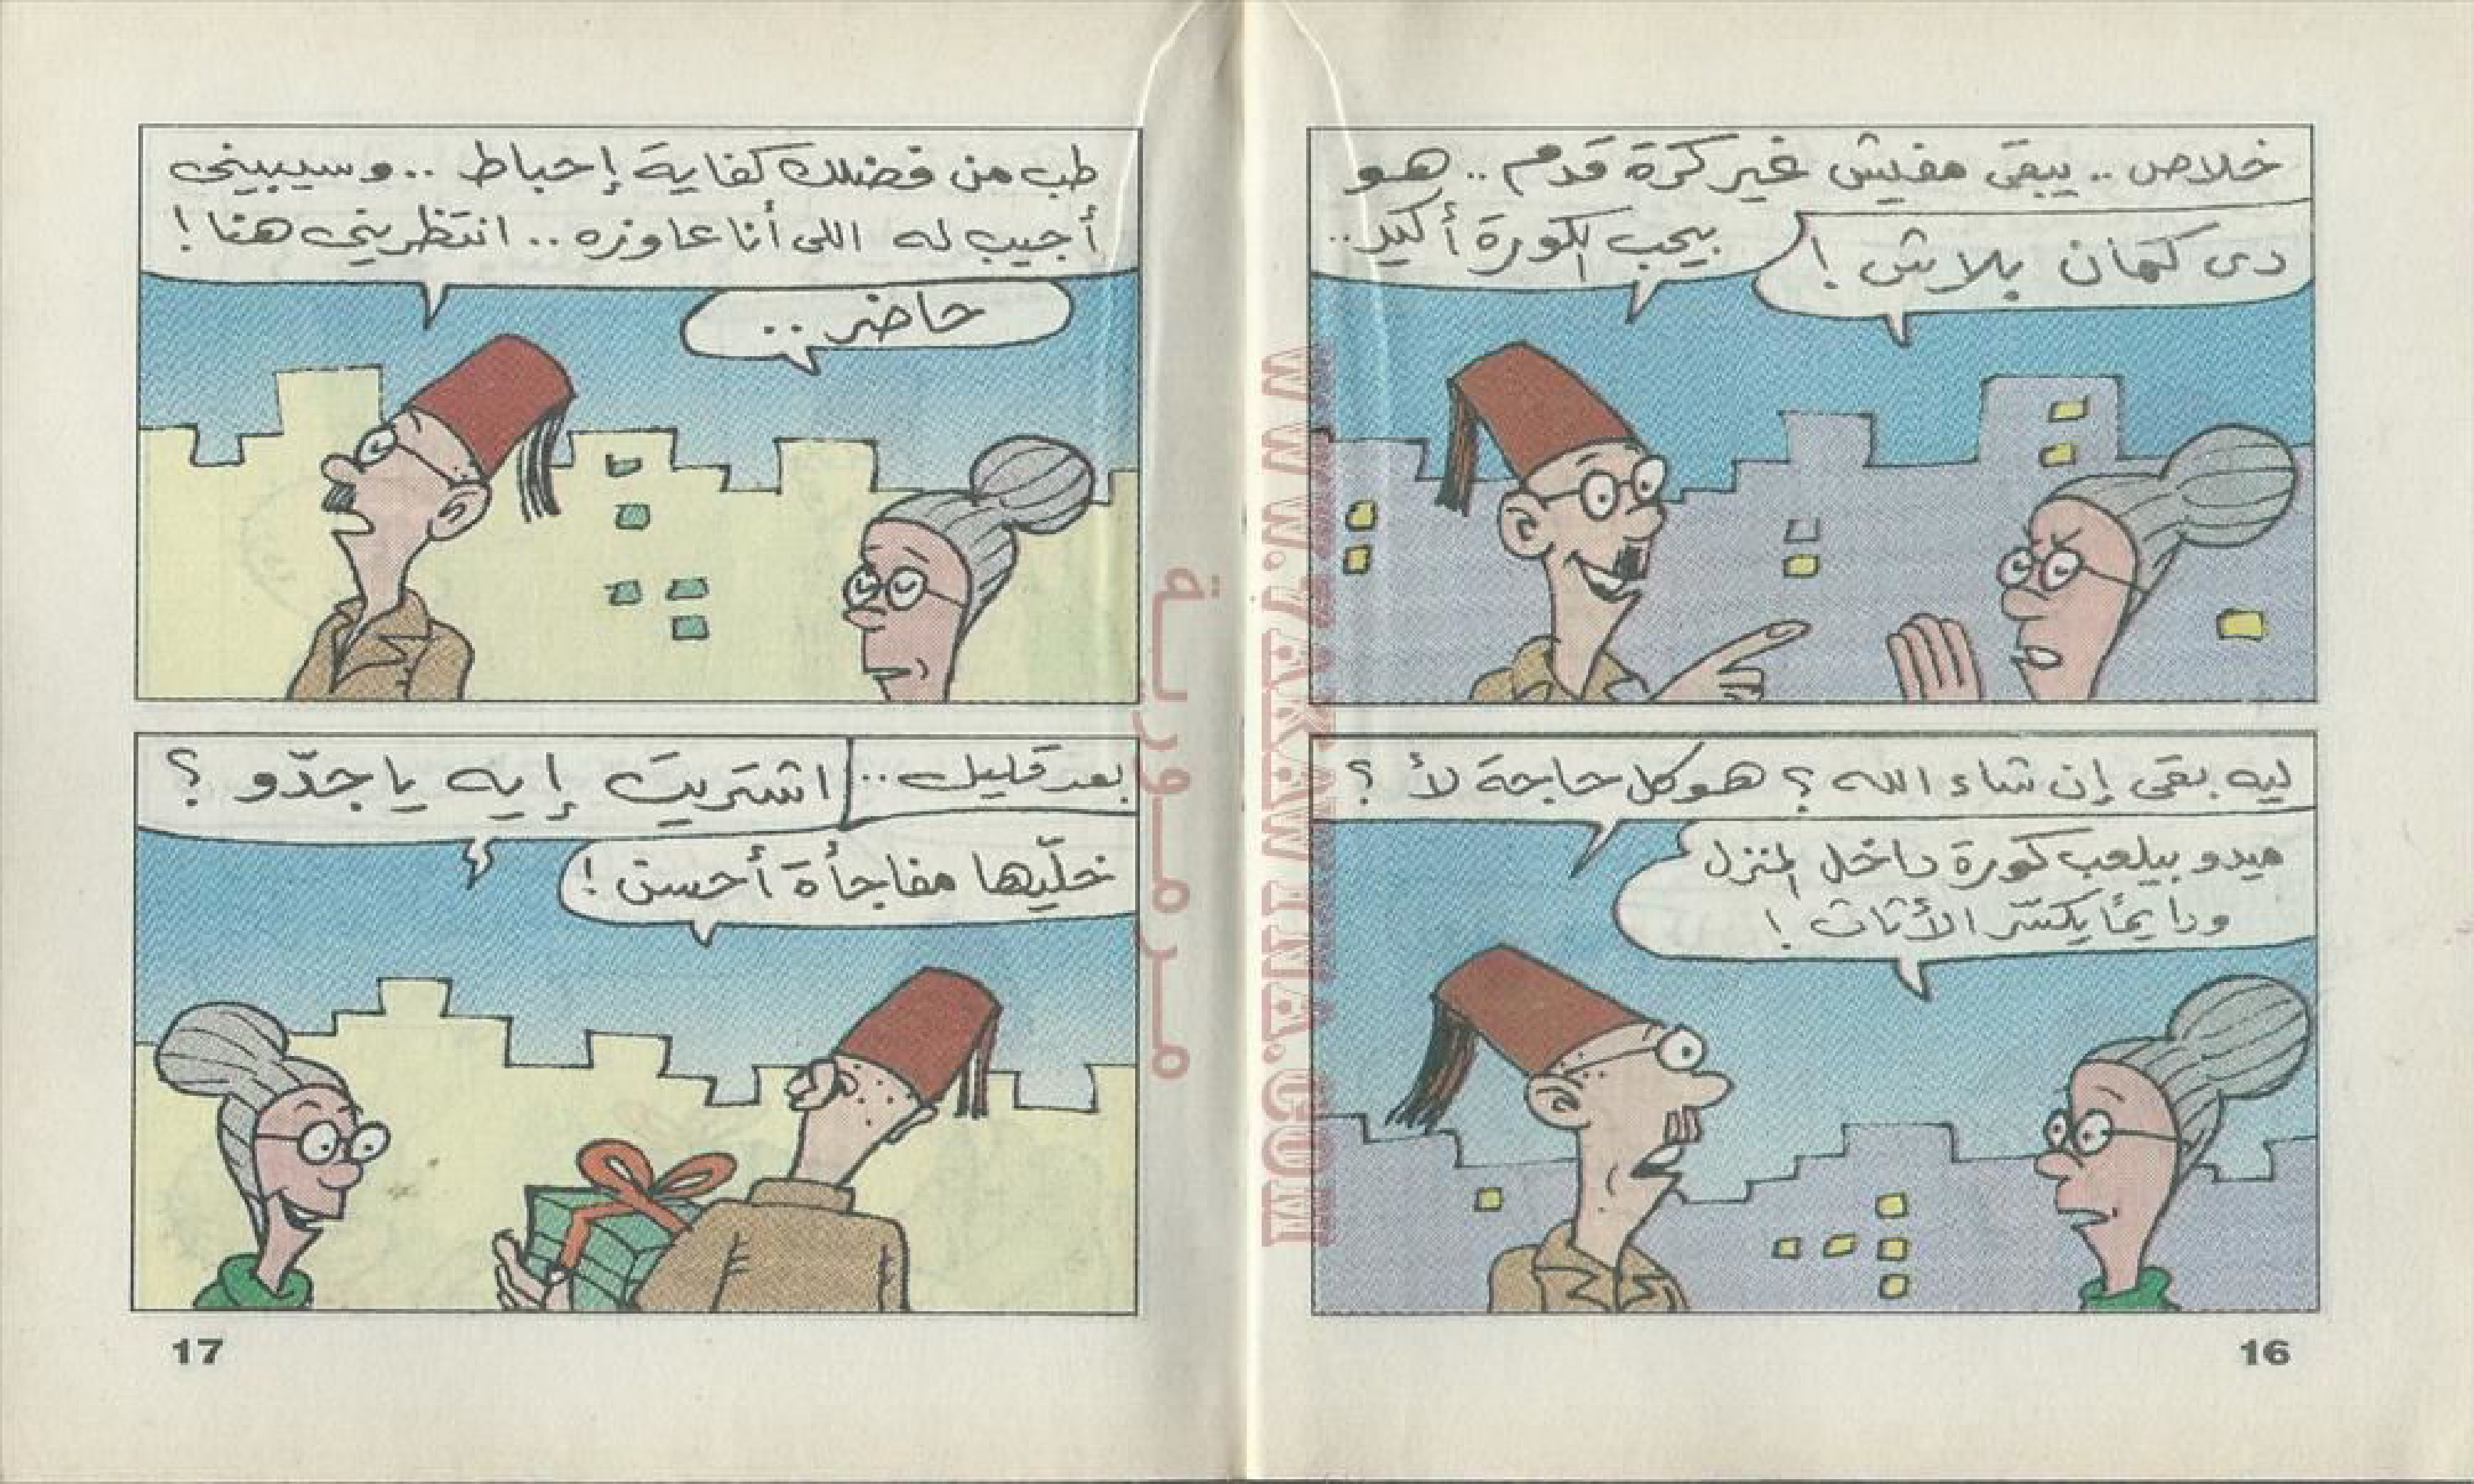 خلاص .. يبقى مفيش غير كرة قدم .. هو
بيحب الكورة أكيد ..
دى كمان بلاش !
ليه بقى إن شاء الله ؟ هو كل حاجة لأ ؟
ميدو بيلعب كورة داخل المنزل
ودايمًا يكسّر الأثاث !
16
طب من فضلك كفاية إحباط .. وسيبينى
أجيب له اللى أنا عاوزه .. انتظرينى هنا !
حاضر ..
بعد قليل ..
اشتريت إيه يا جدّو ؟
خلّيها مفاجأة أحسن !
17
مرمورية
WWW.7AKAWINA.COM